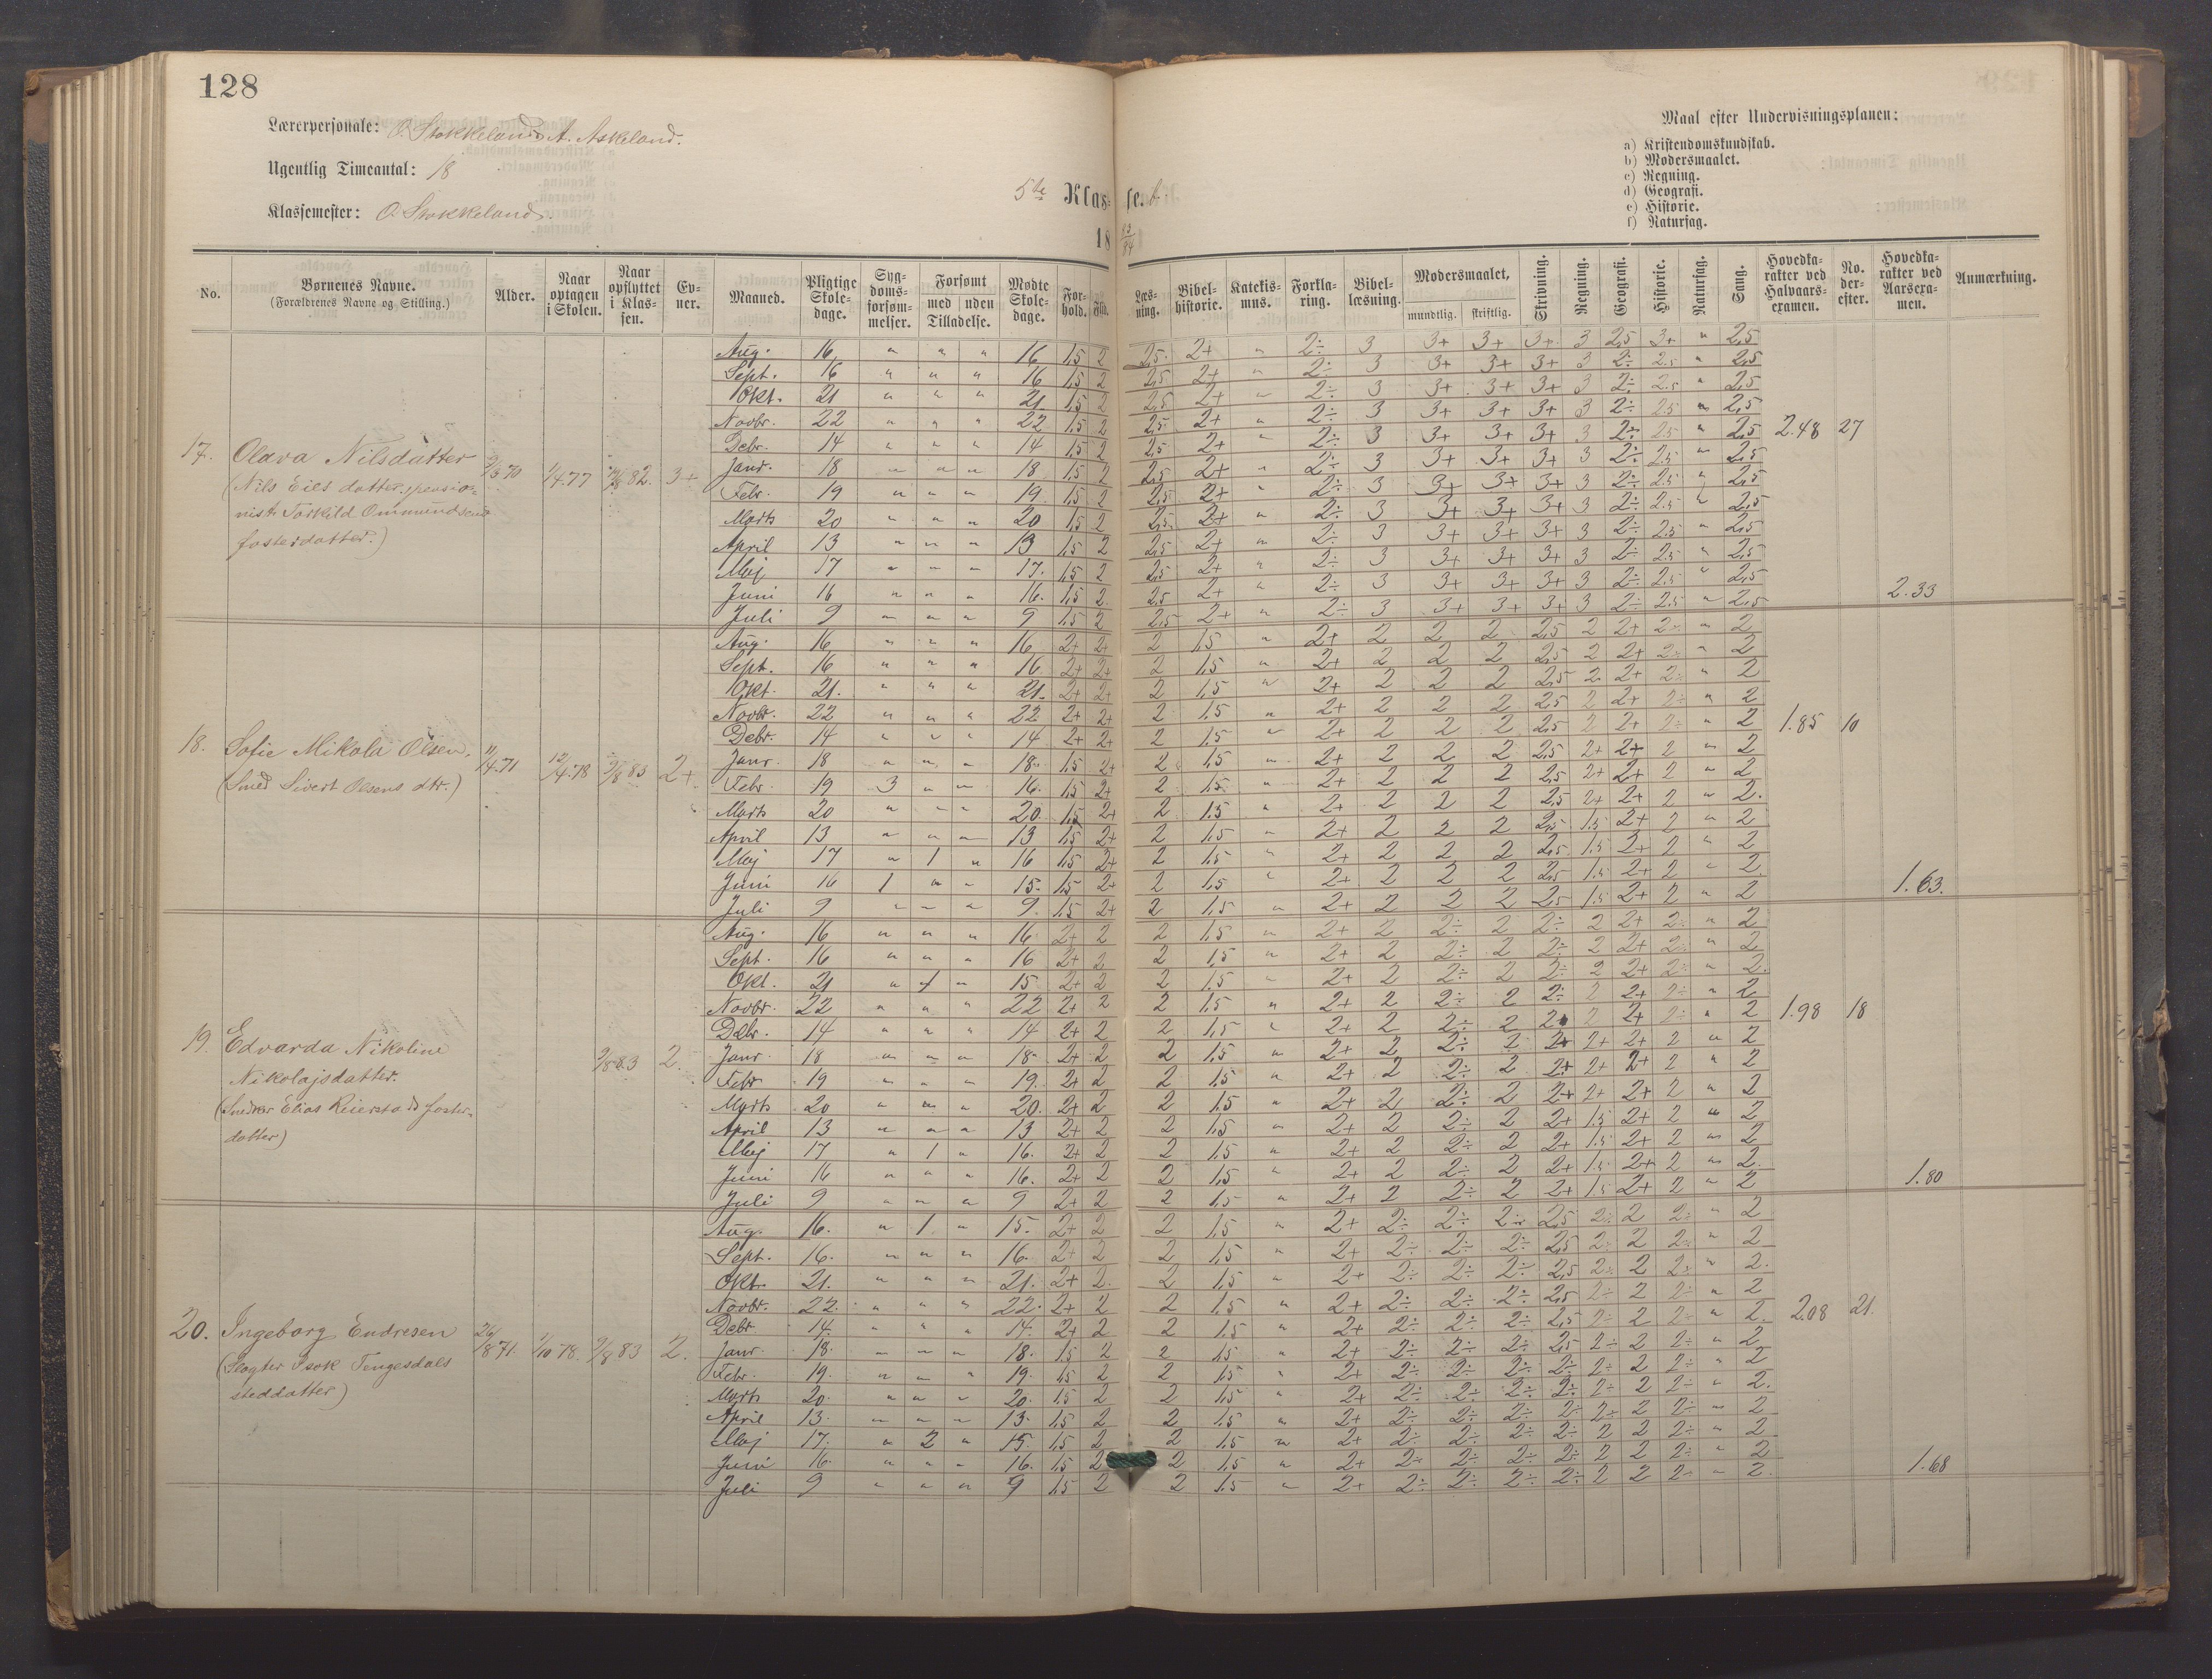 128
Lærerpersonale: O. Stokkeland A. Askeland.
Ugentlig Timeantal: 18
Klassemester: O. Stokkeland.
5te Klasse. b.
18 83/84
Maal efter Undervisningsplanen:
a) Kristendomskundskab.
b) Modersmaalet.
c) Regning.
d) Geografi.
e) Historie.
f) Naturfag.
No. Børnenes Navne. (Forældrenes Navne og Stilling.) Alder. Naar optagen i Skolen. Naar opflyttet i Klassen. Evner. Maaned. Pligtige Skoledage. Sygdomsforsømmelser. Forsømt med uden Tilladelse. Mødte Skoledage. Forhold. Flid. Læsning. Bibelhistorie. Katekismus. Forklaring. Bibellæsning. Modersmaalet, mundtlig. skriftlig. Skrivning. Regning. Geografi. Historie. Naturfag. Sang. Hovedkarakter ved Halvaarsexamen. No. derefter. Hovedkarakter ved Aarsexamen. Anmærkning.
17. Olava Nilsdatter
(Nils Eies datter, pensionist Torkild Ommundsens
fosterdatter.)
1/4.77 3+ 2.48 27 2.33
Aug. 16 " " " 16 1,5 2 2,5 2+ " 2÷ 3 3+ 3+ 3+ 3 2,5 3+ " 2,5
Sept. 16 " " " 16 1,5 2 2,5 2+ " 2÷ 3 3+ 3+ 3+ 3 2÷ 2.5 " 2,5
Okt. 21 " " " 21 1,5 2 2,5 2+ " 2÷ 3 3+ 3+ 3+ 3 2÷ 2.5 " 2,5
Novbr. 22 " " " 22 1,5 2 2,5 2+ " 2÷ 3 3+ 3+ 3+ 3 2÷ 2.5 " 2,5
Debr. 14 " " " 14 1,5 2 2,5 2+ " 2÷ 3 3+ 3+ 3+ 3 2÷ 2.5 " 2,5
Janr. 18 " " " 18 1,5 2 2,5 2+ " 2÷ 3 3+ 3+ 3+ 3 2÷ 2.5 " 2,5
Febr. 19 " " " 19 1,5 2 2,5 2+ " 2÷ 3 3+ 3+ 3+ 3 2÷ 2.5 " 2,5
Marts 20 " " " 20 1,5 2 2,5 2+ " 2÷ 3 3+ 3+ 3+ 3 2÷ 2.5 " 2,5
April 13 " " " 13 1,5 2 2,5 2+ " 2÷ 3 3+ 3+ 3+ 3 2÷ 2.5 " 2,5
Maj 17 " " " 17. 1,5 2 2,5 2+ " 2÷ 3 3+ 3+ 3+ 3 2÷ 2.5 " 2,5
Juni 16 " " " 16. 1,5 2 2,5 2+ " 2÷ 3 3+ 3+ 3+ 3 2÷ 2.5 " 2,5
Juli 9 " " " 9 1,5 2 2,5 2+ " 2÷ 3 3+ 3+ 3+ 3 2÷ 2.5 " 2,5
18. Sofie Mikola Olsen.
(Smed Sivert Olsens dtr.)
11/4.71 12/4.78 9/8 83 2+ 1.85 10 1.63.
Aug. 16 " " " 16 2+ 2+ 2 1,5 " 2+ 2 2 2 2,5 2 2+ 2÷ " 2
Sept. 16 " " " 16 2+ 2+ 2 1,5 " 2+ 2 2 2 2,5 2 2+ 2÷ " 2
Okt. 21. " " " 21. 2+ 2+ 2 1,5 " 2+ 2 2 2 2,5 2 2+ 2÷ " 2
Novbr. 22 " " " 22 2+ 2+ 2 1,5 " 2+ 2 2 2 2,5 2 2+ 2÷ " 2
Debr. 14 " " " 14 2+ 2+ 2 1,5 " 2+ 2 2 2 2,5 2 2+ 2÷ " 2
Janr. 18 " " " 18 1,5 2+ 2 1,5 " 2+ 2 2 2 2,5 2+ 2+ 2 " 2
Febr. 19 3 " " 16. 1,5 2+ 2 1,5 " 2+ 2 2 2 2,5 2+ 2+ 2 " 2
Marts 20 " " " 20. 1,5 2+ 2 1,5 " 2+ 2 2 2 2,5 2+ 2+ 2 " 2.
April 13 " " " 13 1,5 2+ 2 1,5 " 2+ 2 2 2 2,5 1.5 2+ 2 " 2
Maj 17 " 1 " 16 1,5 2+ 2 1,5 " 2+ 2 2 2 2,5 1.5 2+ 2 " 2
Juni 16 1 " " 15. 1,5 2+ 2 1,5 " 2+ 2 2 2 2,5 1.5 2+ 2 " 2.
Juli 9 " " " 9. 1,5 2+ 2 1,5 " 2+ 2 2 2 2,5 1.5 2+ 2 " 2
19. Edvarda Nikoline
Nikolajsdatter.
(Snedker Elias Reiersta ds foster-
datter)
9/8 83 2. 1.98 18 1.80
Aug. 16 " " " 16 2+ 2 2 1,5 " 2+ 2 2÷ 2 2÷ 2 2+ 2÷ " 2
Sept. 16 " " " 16 2+ 2 2 1,5 " 2+ 2 2÷ 2 2÷ 2 2+ 2÷ " 2
Okt. 21 " " 15 2+ 2 2 1,5 " 2+ 2 2÷ 2 2÷ 2 2+ 2÷ " 2.
Novbr. 22 " " " 22 2+ 2 2 1,5 " 2+ 2 2÷ 2 2÷ 2 2+ 2÷ " 2
Debr. 14 " " " 14 2+ 2 2 1,5 " 2+ 2 2÷ 2 2 2+ 2÷ " 2
Janr. 18 " " " 18 2+ 2 2 1,5 " 2+ 2 2÷ 2 2+ 2+ 2+ 2 " 2
Febr. 19 " " " 19. 2+ 2 2 1,5 " 2+ 2 2÷ 2 2+ 2+ 2+ 2 " 2
Marts 20 " " " 20. 2+ 2 2 1,5 " 2+ 2 2÷ 2 2+ 2+ 2+ 2 " 2
April 13 " " " 13 2+ 2 2 1,5 " 2+ 2 2÷ 2 2+ 1.5 2+ 2 " 2
Maj 17 " 1 " 16. 2+ 2 2 1,5 " 2+ 2 2÷ 2 2+ 1.5 2+ 2 " 2
Juni 16 " " " 16. 2+ 2 2 1,5 " 2+ 2 2÷ 2 2+ 1.5 2+ 2 " 2.
Juli 9 " " " 9 2+ 2 2 1,5 " 2+ 2 2÷ 2 2+ 1.5 2+ 2 " 2
20. Ingeborg Endresen
(Slagter Isak Tengesdals
steddatter)
26/8 71. 1/10 78. 9/8 83 2. 2.08 21. 1.68
Aug. 16. " 1 " 15. 2+ 2 2 1,5 " 2+ 2÷ 2÷ 2÷ 2,5 2÷ 2 2÷ " 2
Sept. 16. " " " 16. 2+ 2 2 1,5 " 2+ 2÷ 2÷ 2÷ 2,5 2÷ 2 2÷ " 2
Okt. 21. " " " 21. 2+ 2. 2 1,5 " 2+ 2÷ 2÷ 2÷ 2,5 2÷ 2 2÷ " 2.
Novbr. 22. " " " 22. 2+ 2 2 1,5 " 2+ 2÷ 2÷ 2÷ 2,5 2÷ 2 2÷ " 2
Debr. 14. " " " 14. 2+ 2 2 1,5 " 2+ 2÷ 2÷ 2÷ 2,5 2÷ 2 2÷ " 2.
Janr. 18. " " " 18. 1,5 2 2 1,5 " 2+ 2÷ 2÷ 2÷ 2,5 2÷ 2 2÷ " 2
Febr. 19. " " " 19. 1,5 2 2 1,5 " 2+ 2÷ 2÷ 2÷ 2÷ 2÷ 2 2÷ " 2
Marts 20. " " " 20. 1,5 2 2 1,5 " 2+ 2÷ 2÷ 2÷ 2÷ 2÷ 2 2÷ " 2.
April 13. " " " 13. 1,5 2 2 1,5 " 2+ 2÷ 2÷ 2÷ 2÷ 2÷ 2 2÷ " 2
Maj 17. " 2 " 15. 1,5 2 2 1,5 " 2+ 2÷ 2÷ 2÷ 2÷ 2 2 2÷ " 2
Juni 16. " " " 16. 1,5 2 2 1,5 " 2+ 2÷ 2÷ 2÷ 2÷ 2 2 2÷ " 2
Juli 9 " " " 9 1,5 2 2 1,5 " 2+ 2÷ 2÷ 2÷ 2÷ 2 2 2÷ " 2.